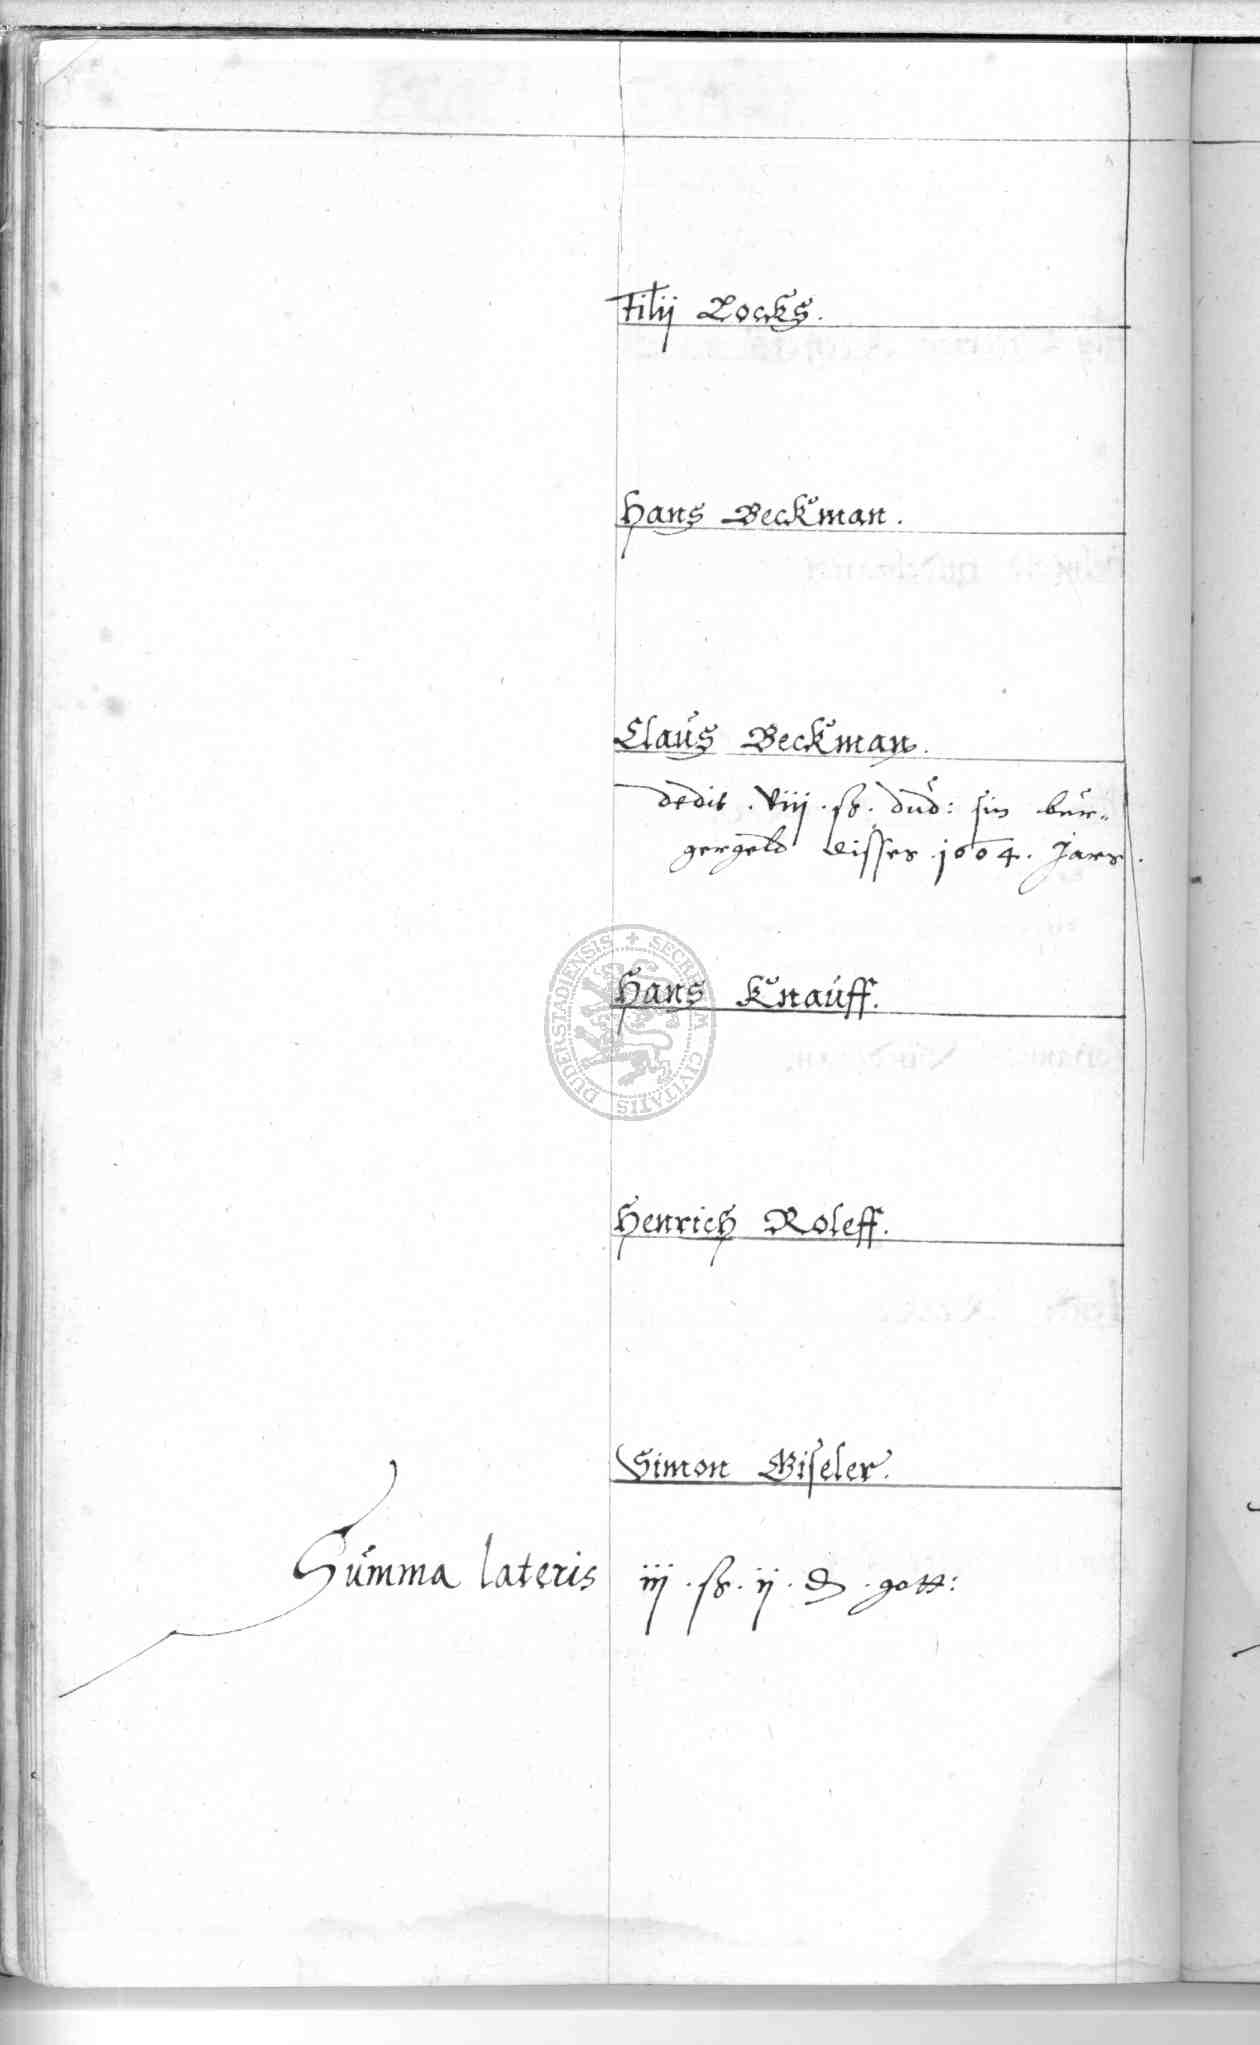 Filij Rocks.
Hans Beckman.
Claus Beckman.
dedit . viij . ß . dud: sin bur-
gergeld disses . 1604 . Jars .
Hans Knauff.
Henrich Roleff.
Simon Giseler.
Summa lateris iij . ß . ij . ₰ . gott:
SECRETUM CIVITATIS DUDERSTADIENSIS